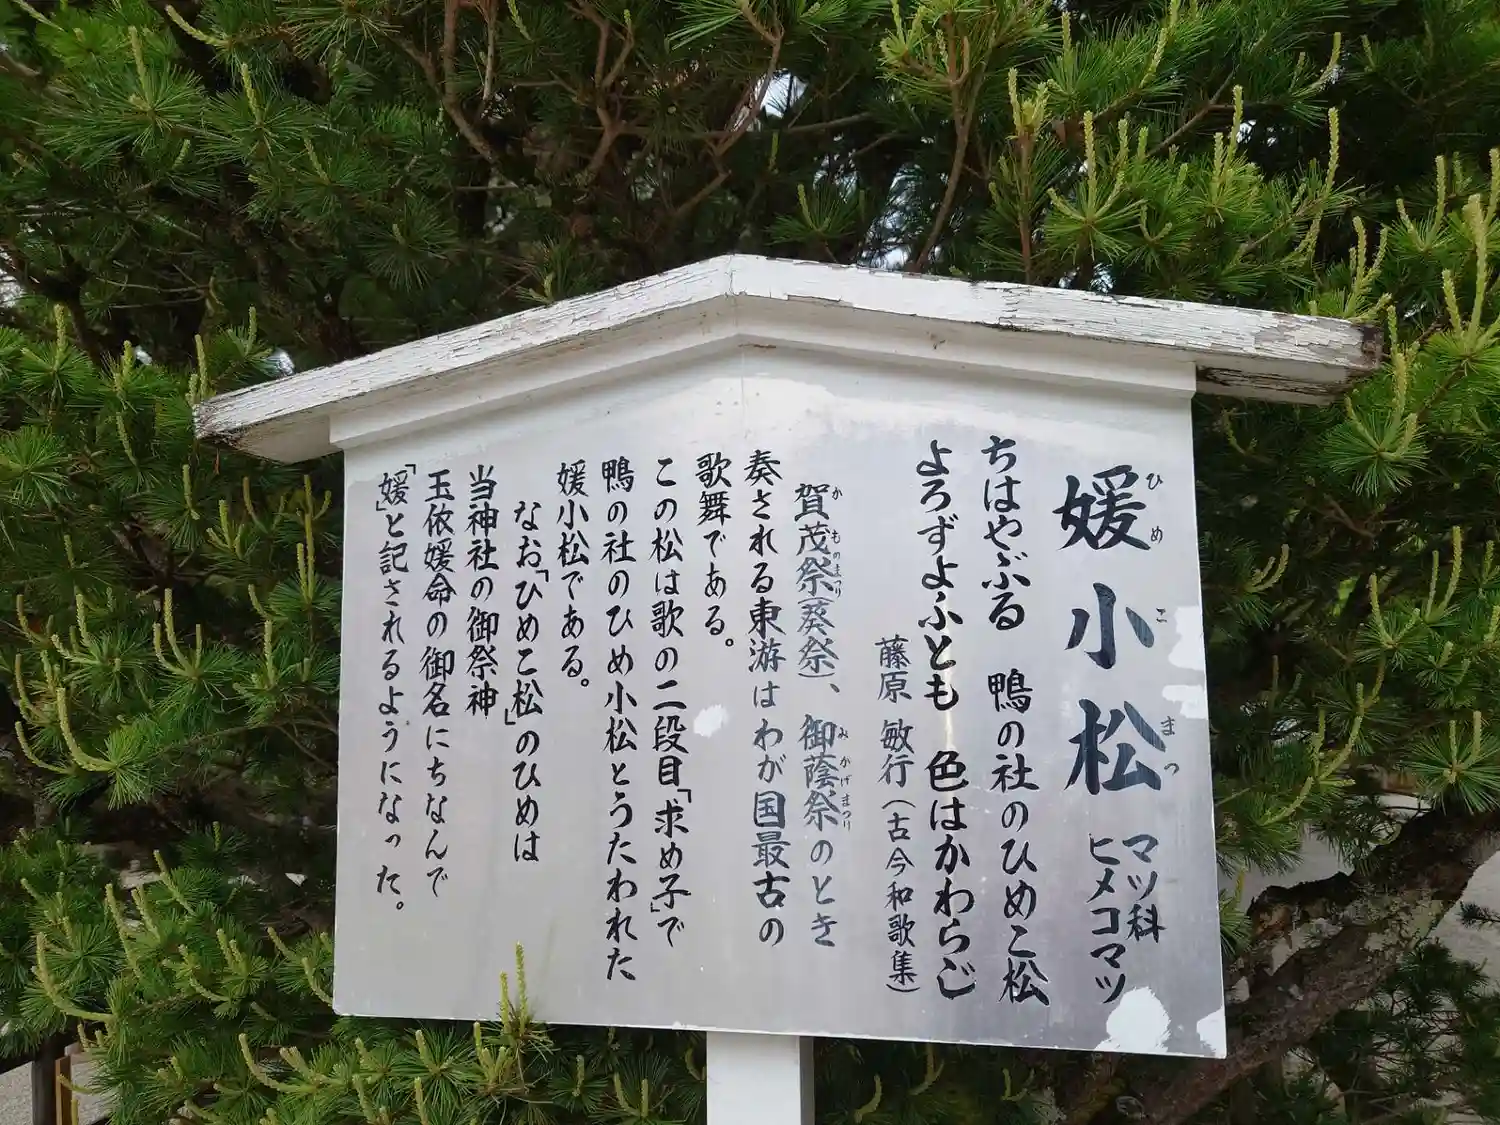 媛小松
ひめこまつ
マツ科
ヒメコマツ
ちはやぶる　鴨の社のひめこ松
よろずよふとも　色はかわらじ
藤原 敏行（古今和歌集）
賀茂祭（葵祭）、御蔭祭のとき
かものまつり
みかげまつり
奏される東游はわが国最古の
歌舞である。
この松は歌の二段目「求め子」で
鴨の社のひめ小松とうたわれた
媛小松である。
なお「ひめこ松」のひめは
当神社の御祭神
玉依媛命の御名にちなんで
「媛」と記されるようになった。